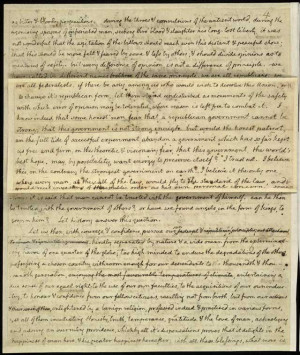 during the throes & convulsions of the antient world, during the
agonising spasms of infuriated man, seeking thro' blood & slaughter his long lost liberty, it was
not wonderful that the agitation of the billows should reach even this distant & peaceful shore;
that this should be more felt & feared by some & less by others; & should divide opinions as to
measures of safety. but every difference of opinion, is not a difference of principle. we have
called by different names brethren of the same principle. we are all republicans: we
are all federalists. if there be any among us who would wish to dissolve this Union, or
to change it's republican form, let them stand undisturbed as monuments of the safety
with which error of opinion may be tolerated, where reason is left free to combat it.
I know indeed that some honest men fear that a republican government cannot be
strong; that this government is not strong enough. but would the honest patriot,
in the full tide of successful experiment abandon a government which has so far kept
us free and firm, on the theoretic & visionary fear, that this government, the world's
best hope, may, by possibility, want energy to preserve itself? I trust not. I believe
this, on the contrary, the strongest government on earth. I believe it the only one
where every man, at the call of the law, would fly to the standard of the law, and
would meet invasions of the public order as his own personal concern.
Sometimes it is said that man cannot be trusted with the government of himself. can he then
be trusted with the government of others? or have we found angels, in the form of kings, to
govern him? Let history answer this question.
Let us then, with courage & confidence, pursue our
kindly separated by nature & a wide ocean from the exterminating
havoc of one quarter of the globe; too high minded to endure the degradations of the others,
possessing a chosen country, with room enough for our descendants to the thousandth &
thousandth generation, entertaining a
due sense of our equal right to the use of our own faculties, to the acquisitions of our own industry,
to honor & confidence from our fellow citizens, resulting not from birth, but from our actions
& their sense of them, enlightened by a benign religion, professed indeed & practised in various forms,
yet all of them inculcating honesty, truth, temperance, gratitude & the love of man, acknoleging
and adoring an overruling providence, which by all it's dispensations proves that it delights in the
happiness of man here, & his greater happiness hereafter; with all these blessings, what more is